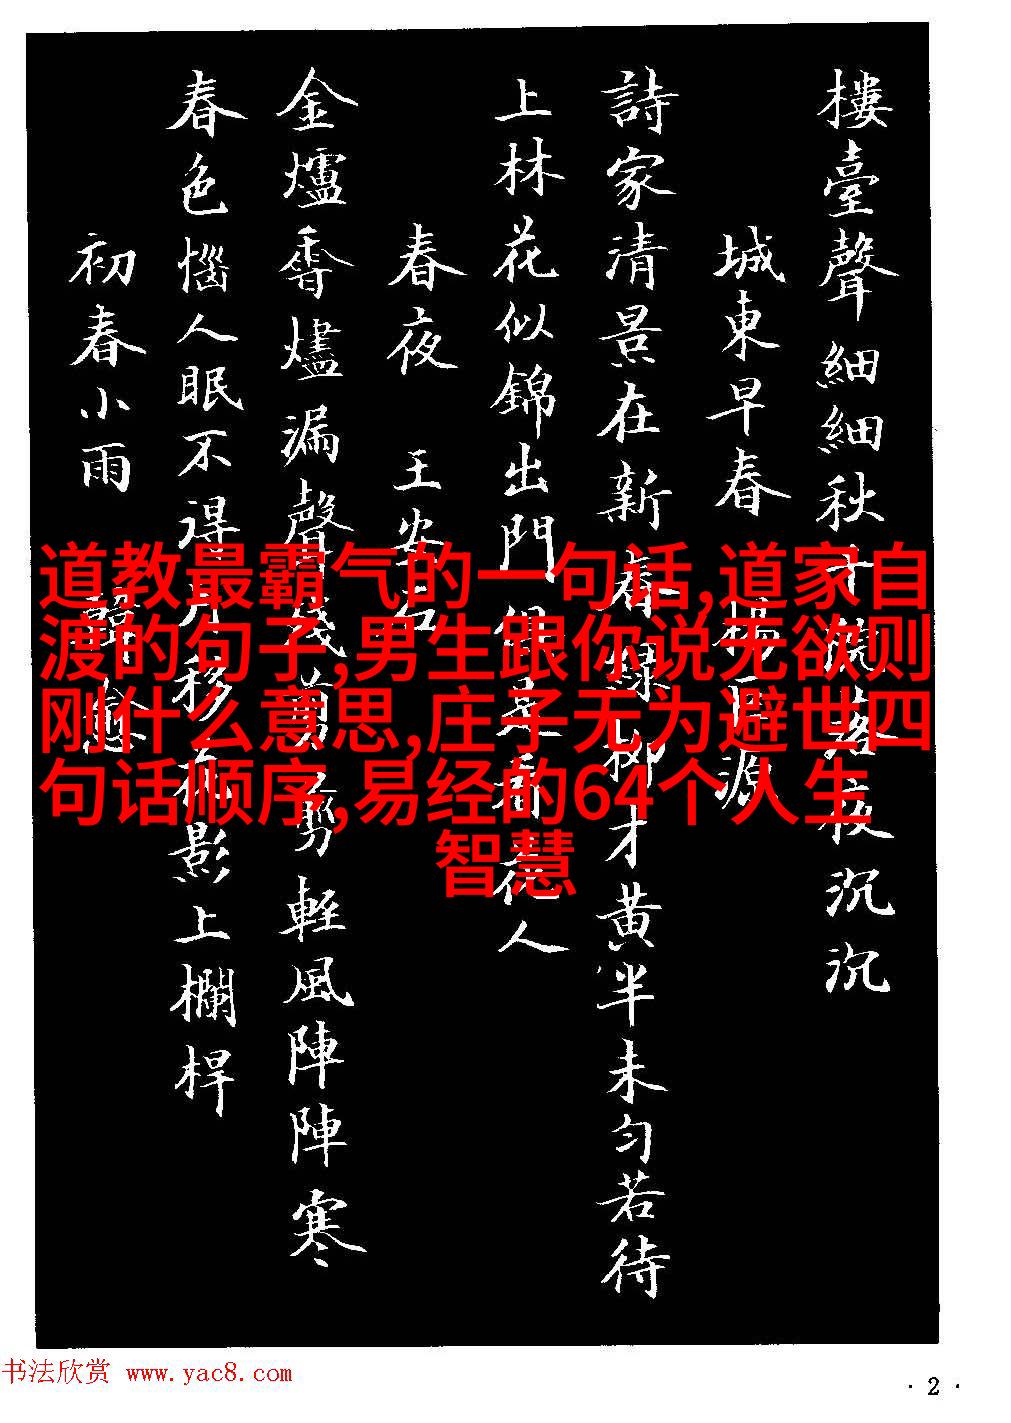 樓臺聲細細秋千院落夜沉沉
城東早春 楊巨源
詩家清景在新春綠柳才黃半未勻若待
上林花似錦出門俱是看花人
春夜 王安石
金爐香燼漏聲殘剪剪輕風陣陣寒
春色惱人眠不得月移花影上欄桿
初春小雨 韓愈
道教最霸气的一句话,道家自
渡的句子,男生跟你说无欲则
刚什么意思,庄子无为避世四
句话顺序,易经的64个人生
智慧
书法欣赏 www.yac8.com
· 2 ·